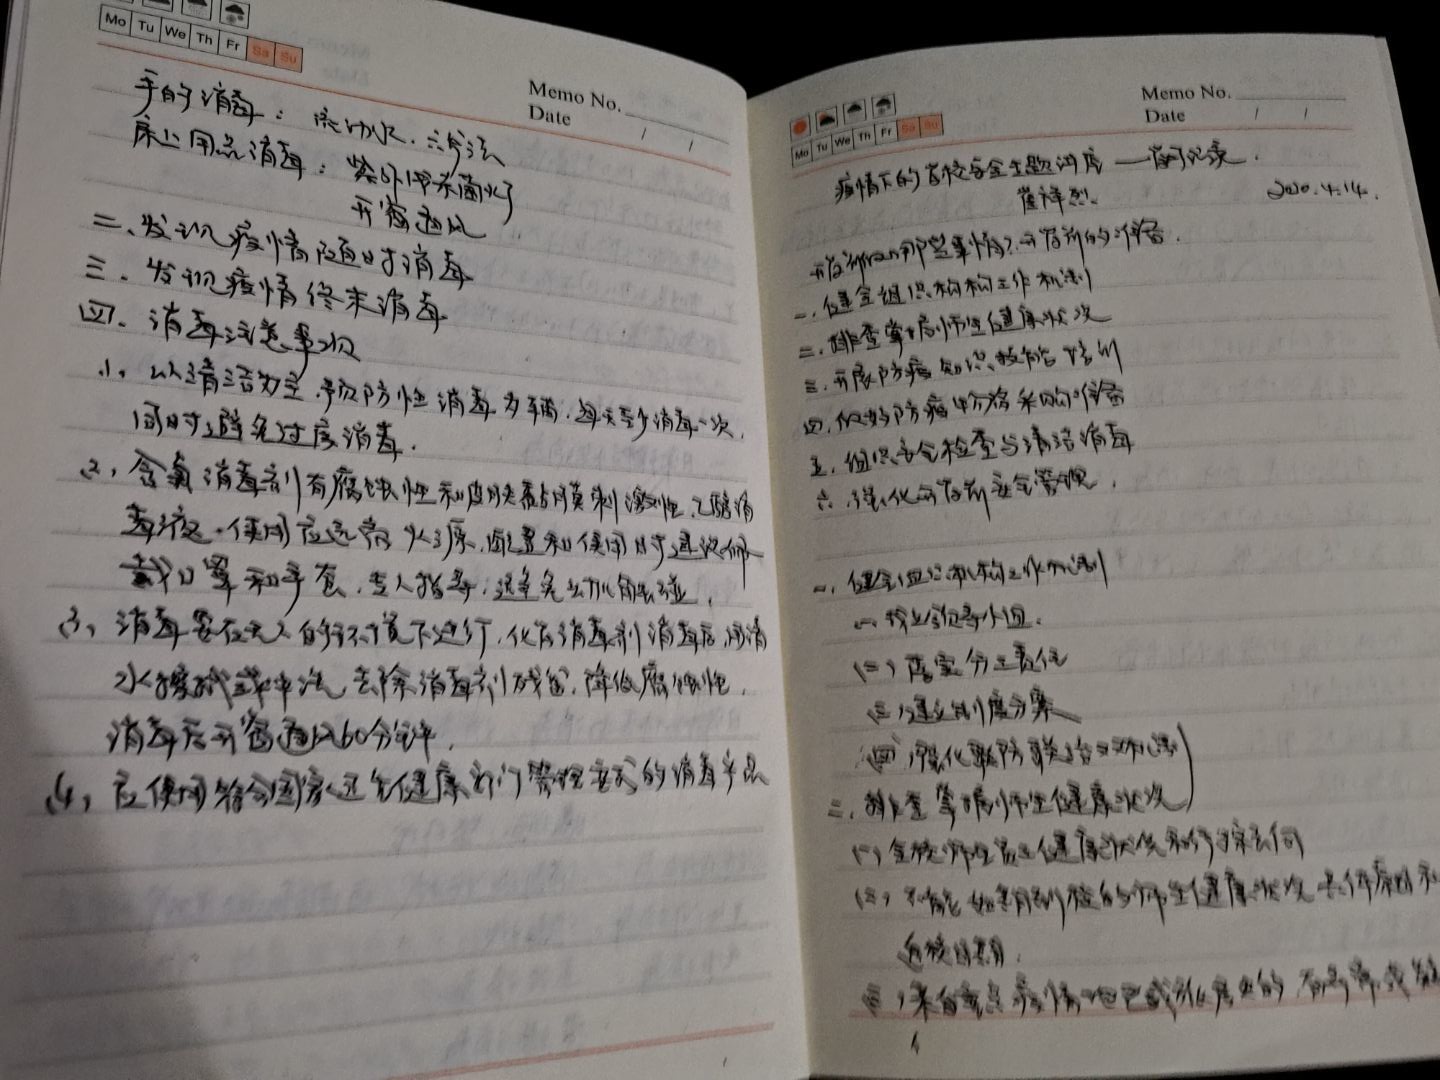 Mo Tu We Th Fr Sa Su
Memo No.
Date / /
手的消毒：流动水、六步法
床上用品消毒：紫外伸杀菌灯
开窗通风
二、发现疫情随时消毒
三、发现疫情终末消毒
四、消毒注意事项
1、以清洁为主，预防性消毒为辅，每天至少消毒一次，
同时避免过度消毒．
2、含氯消毒剂有腐蚀性和皮肤黏膜刺激性，乙醇消
毒液，使用应远离火源，配置和使用时建议佩
戴口罩和手套，专人指导，避免幼儿触碰．
3、消毒要在无人的环境下进行，化学消毒剂消毒后，用清
水擦拭或冲洗，去除消毒剂残留，降低腐蚀性，
消毒后开窗通风60分钟．
4、应使用符合国家卫生健康部门管理要求的消毒产品
Mo Tu We Th Fr Sa Su
Memo No.
Date / /
疫情下的学校安全主题讲座——学习记录．
2020.4.14.
开学前做哪些事情？开学前的准备．
一、健全组织机构工作机制
二、排查掌握师生健康状况
三、开展防疫知识技能培训
四、做好防疫物资采购准备
五、组织安全检查与清洁消毒
六、强化开学前安全管理．
一、健全组织机构工作机制
一、成立领导小组．
(二)落实分工责任
(三)建立制度方案
(四)强化联防联控机制
二、排查掌握师生健康状况
(一)全校师生员工健康状况和行踪去向
(二)不能如期到校的师生健康状况、具体原因和
返校日期．
(三)来自重点疫情地区或